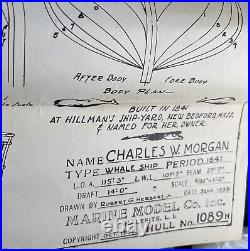 AFTER BODY FORE BODY
BODY PLAN
BUILT IN 1841
AT HILLMAN'S SHIP-YARD, NEW BEDFORD, MASS.
& NAMED FOR HER OWNER.
NAME CHARLES W. MORGAN
TYPE WHALE SHIP PERIOD 1841
L.O.A. 115'-3" L.W.L. 107'-7" BEAM 27'-7"
DRAFT 14'-0" SCALE
DATE 1939
DRAWN BY ROBERT G. HERBERT JR.
MARINE MODEL CO. INC.
N.Y.
COPYRIGHT HULL NO. 1089H